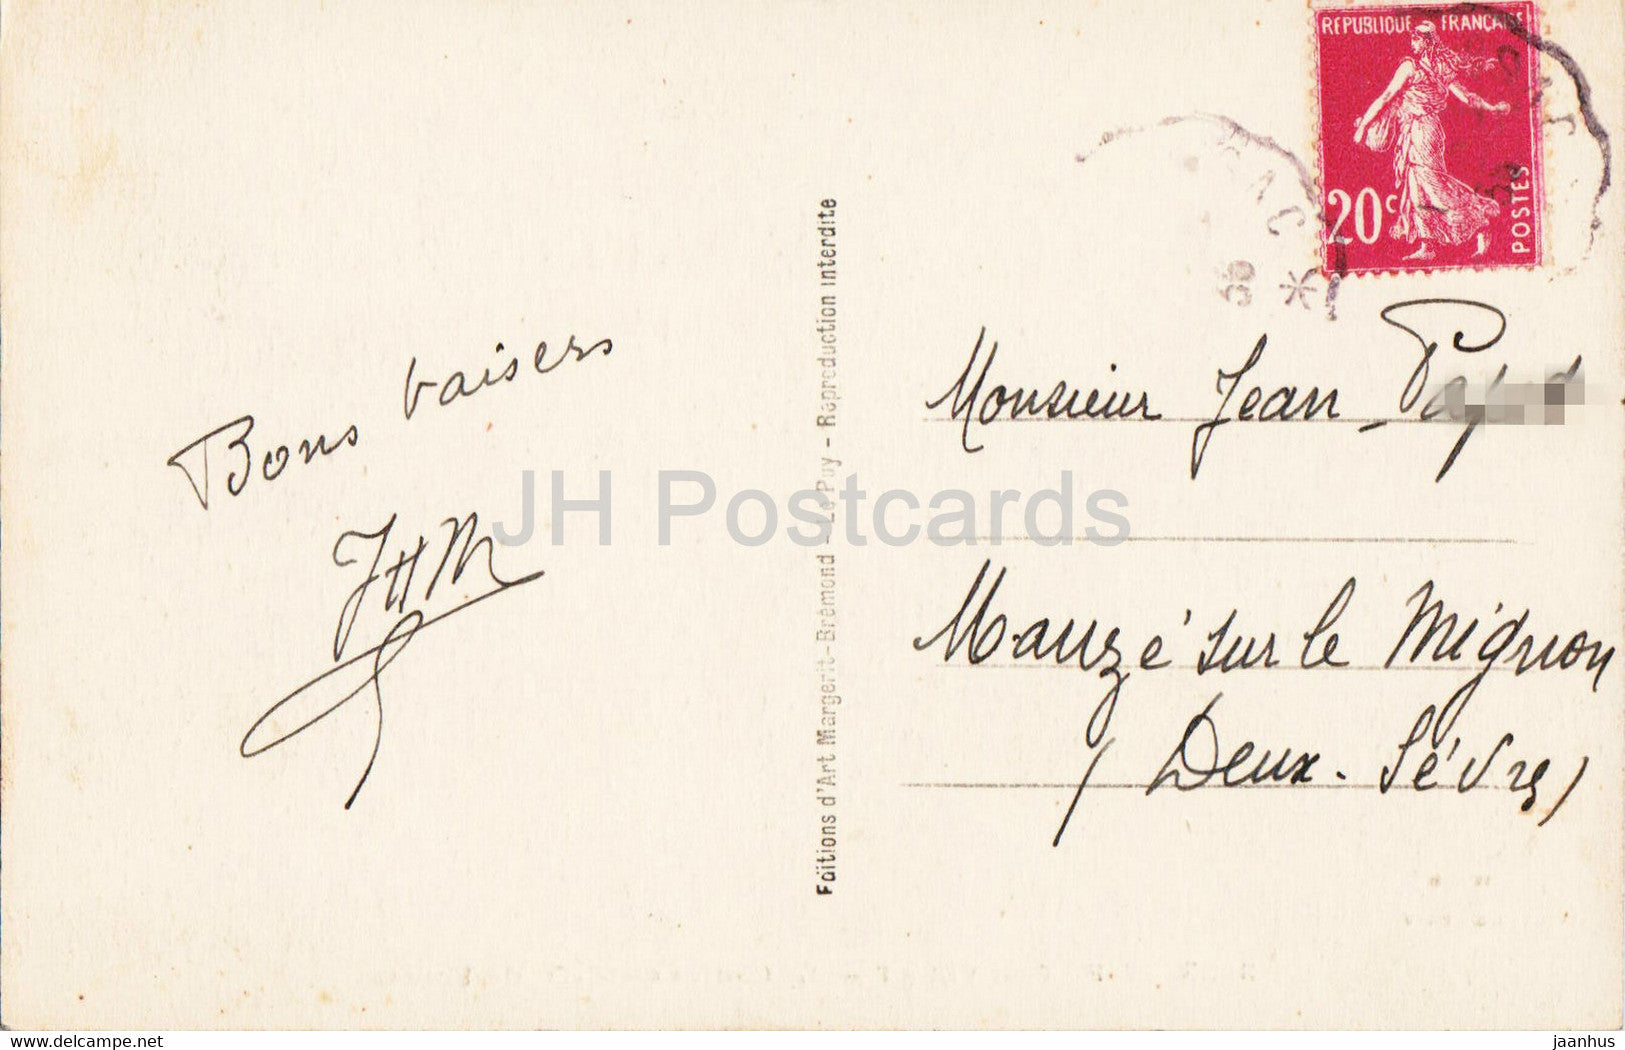 RÉPUBLIQUE FRANÇAISE
20c
POSTES
36
Bons baisers
JHM
Editions d'Art Margerit-Brémond - Le Puy - Reproduction interdite
Monsieur Jean
Mauzé sur le Mignon
(Deux-Sévres)
JH Postcards
delcampe.net
jaanhus